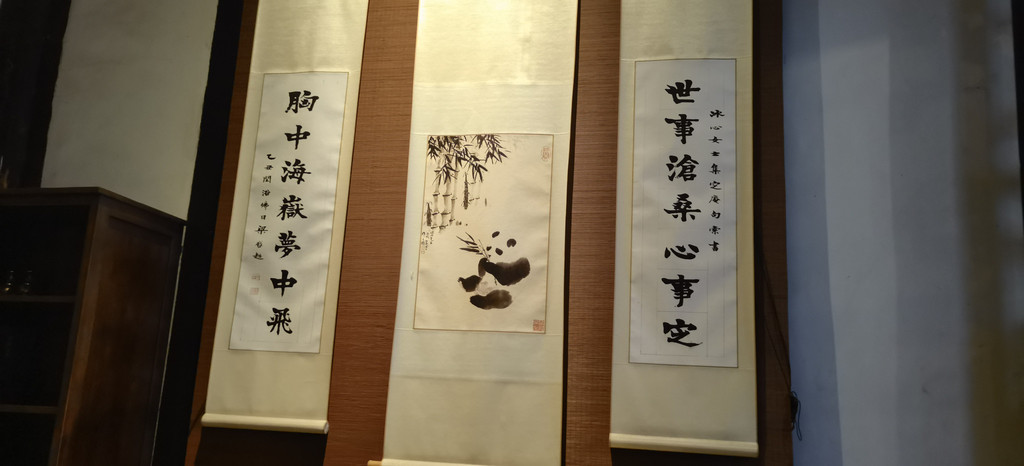 冰心女士集定庵句索書
世事滄桑心事定
胸中海嶽夢中飛
乙丑閏浴佛日梁啟超